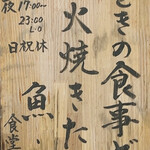 ときの食事ど
火焼きた
魚、
食堂
夜17:00〜
23:00
L.O
日祝休